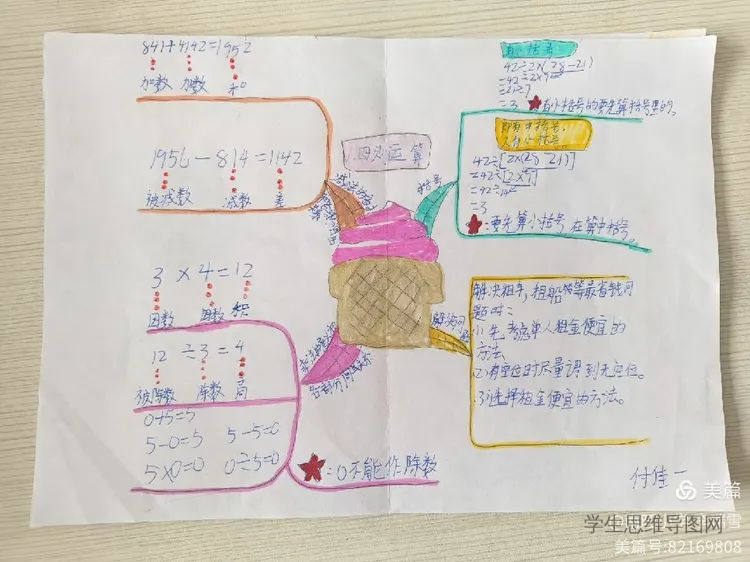 841+4142=1952
加数 加数 和
1956-814=1142
被减数 减数 差
四则运算
括号
有小括号
42÷2×(28-21)
=3
★有小括号的要先算括号里的。
既有中括号,
又有小括号。
42÷[2×(28-21)]
=3
★:要先算小括号 在算中括号。
3×4=12
因数 因数 积
12÷3=4
被除数 除数 商
0+5=5
5-0=5 5-5=0
5×0=0 0÷5=0
★:0不能作除数
解决问题
解决租车,租船等最省钱问
题时:
1)先考虑单人租金便宜的
方法、
2)有空位时尽量调到无空位。
3)选择租金便宜的方法。
付佳一
美篇
学生思维导图网
美篇号:82169808